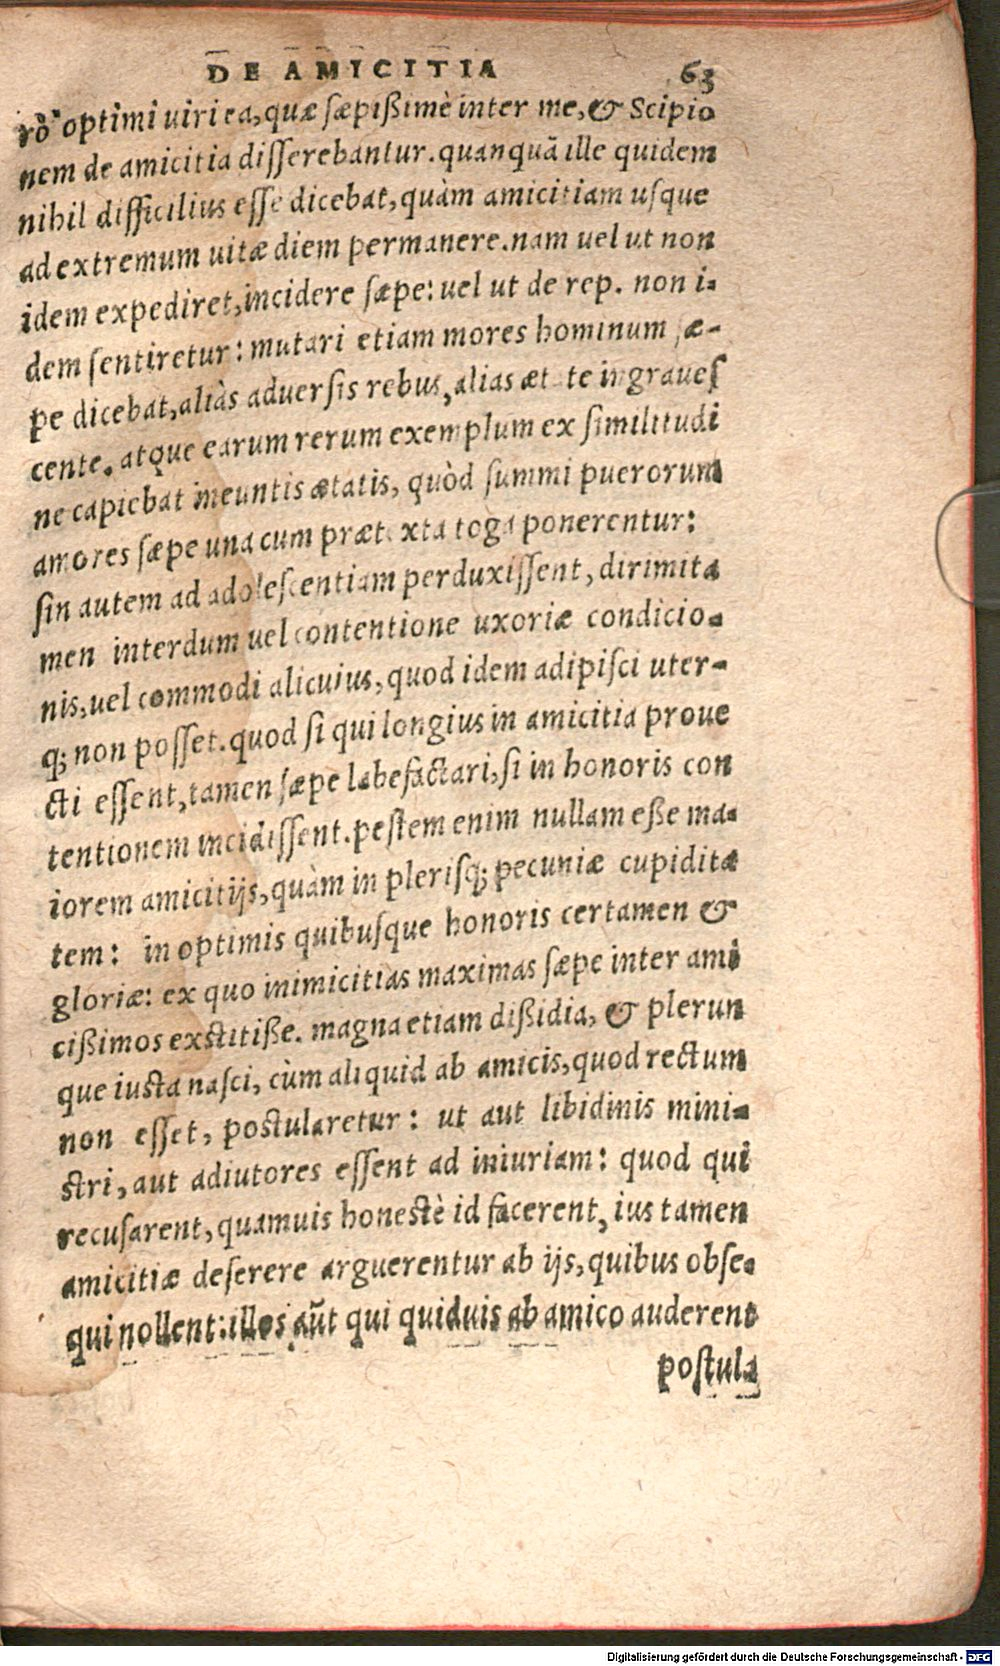 DE AMICITIA 63
rò optimi uiri ea, quæ sæpißimè inter me, & Scipio
nem de amicitia disserebantur. quanquā ille quidem
nihil difficilius esse dicebat, quàm amicitiam usque
ad extremum uitæ diem permanere. nam uel ut non
idem expediret, incidere sæpe: uel ut de rep. non i-
dem sentiretur: mutari etiam mores hominum sæ-
pe dicebat, aliàs aduersis rebus, alias ætate ingraues
cente. atque earum rerum exemplum ex similitudi
ne capiebat ineuntis ætatis, quòd summi puerorum
amores sæpe una cum prætexta toga ponerentur:
sin autem ad adolescentiam perduxissent, dirimi ta
men interdum uel contentione uxoriæ condicio-
nis, uel commodi alicuius, quod idem adipisci uter-
q; non posset. quod si qui longius in amicitia proue
cti essent, tamen sæpe labefactari, si in honoris con
tentionem incidissent. pestem enim nullam eße ma-
iorem amicitijs, quàm in plerisq; pecuniæ cupidita
tem: in optimis quibusque honoris certamen &
gloriæ: ex quo inimicitias maximas sæpe inter ami
cißimos exstitiße. magna etiam dißidia, & plerun
que iusta nasci, cùm aliquid ab amicis, quod rectum
non esset, postularetur: ut aut libidinis mini-
stri, aut adiutores essent ad iniuriam: quod qui
recusarent, quamuis honestè id facerent, ius tamen
amicitiæ deserere arguerentur ab ijs, quibus obse-
qui nollent: illos aūt qui quiduis ab amico auderent
postula
Digitalisierung gefördert durch die Deutsche Forschungsgemeinschaft - DFG